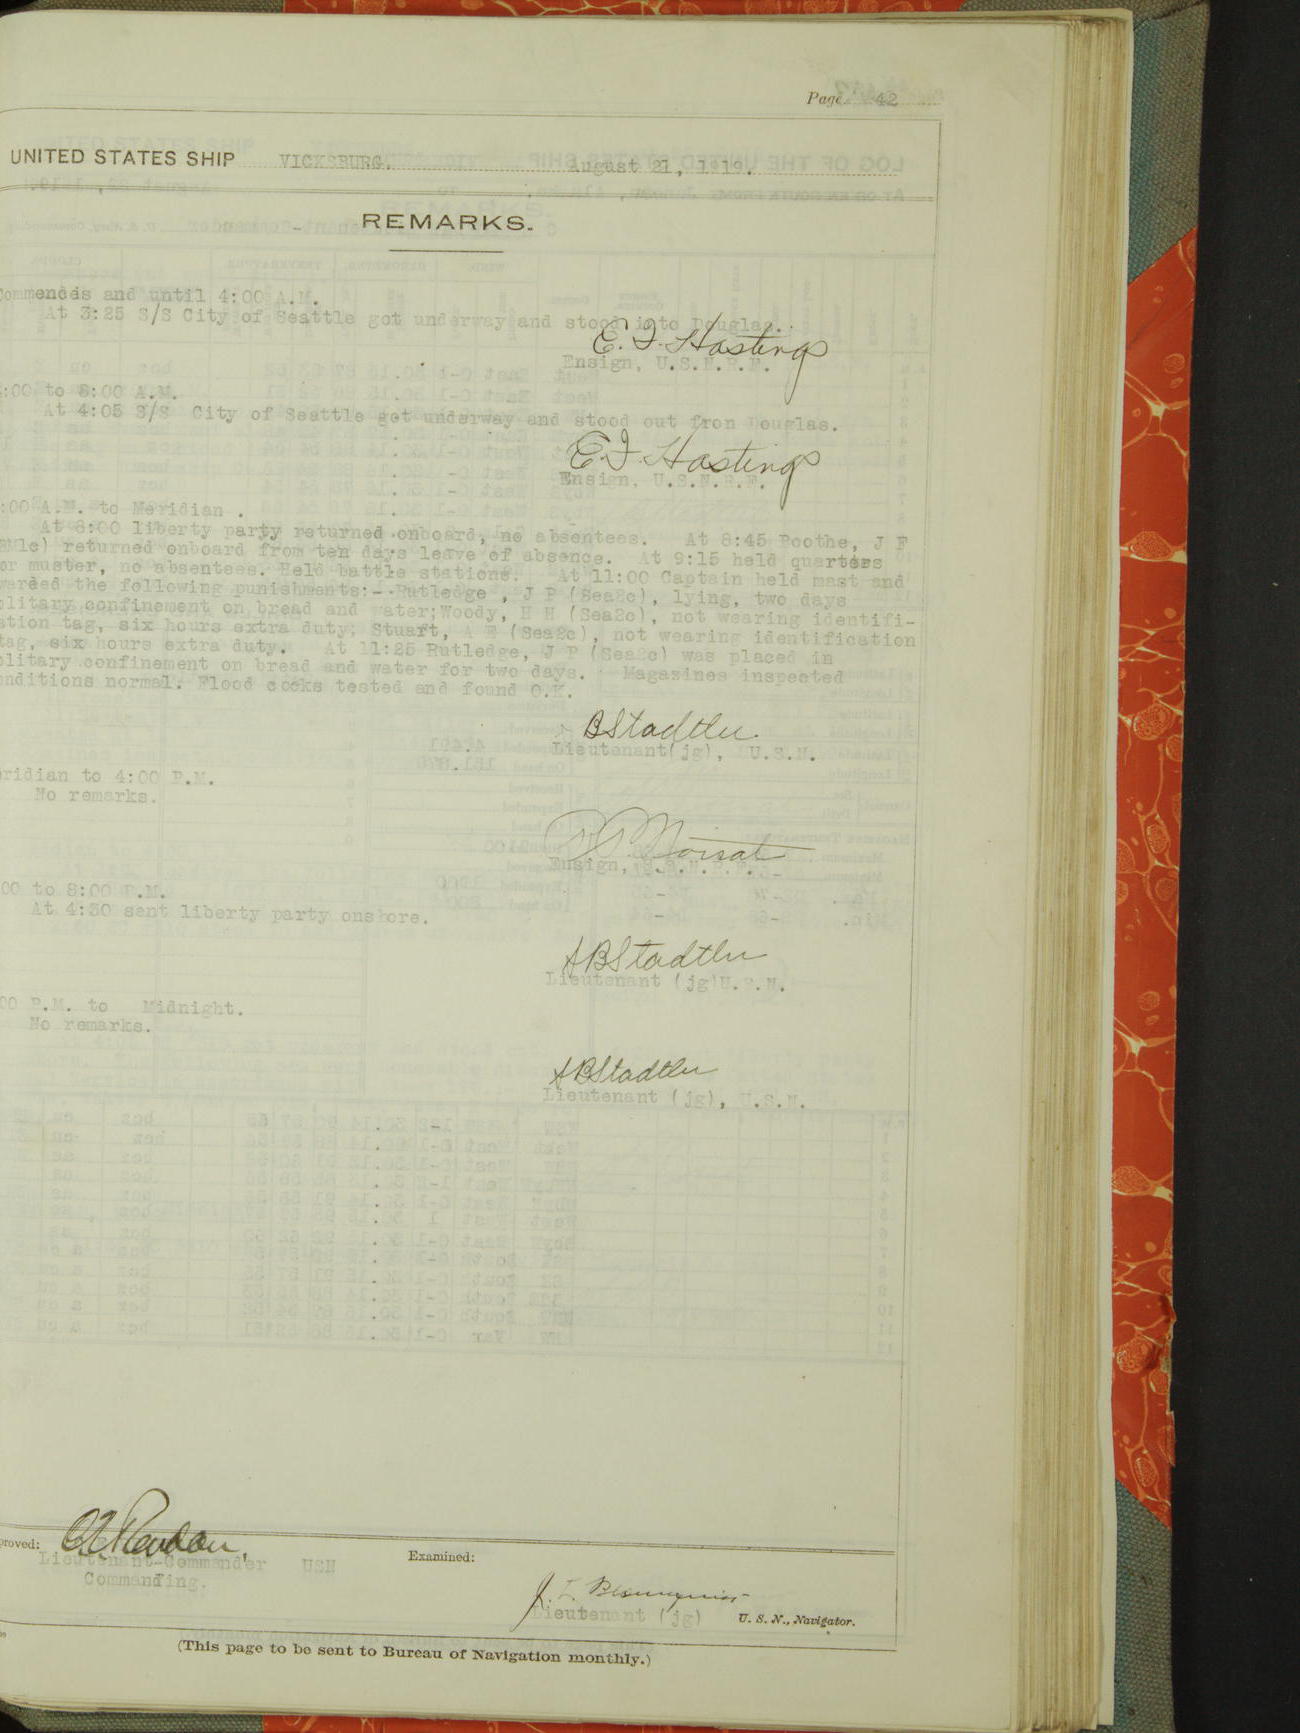 Page 42
UNITED STATES SHIP VICKSBURG. August 21, 1919.
REMARKS.
Commences and until 4:00 A.M.
At 3:25 S/S City of Seattle got underway and stood into Douglas.
E. J. Hastings
Ensign, U.S.N.R.F.
:00 to 8:00 A.M.
At 4:05 S/S City of Seattle got underway and stood out fron Douglas.
E. J. Hastings
Ensign, U.S.N.R.F.
:00 A.M. to Meridian .
At 8:00 liberty party returned onboard, no absentees. At 8:45 Boothe, J F
BM1c) returned onboard from ten days leave of absence. At 9:15 held quarters
or muster, no absentees. Held battle stations. At 11:00 Captain held mast and
warded the following punishments:- Rutledge , J P (Sea2c), lying, two days
olitary confinement on bread and water;Woody, H H (Sea2c), not wearing identifi-
ation tag, six hours extra duty; Stuart, A E (Sea2c), not wearing identification
tag, six hours extra duty. At 11:25 Rutledge, J P (Sea2c) was placed in
olitary confinement on bread and water for two days. Magazines inspected
onditions normal. Flood cocks tested and found O.K.
BStadtler.
Lieutenant(jg), U.S.N.
eridian to 4:00 P.M.
No remarks.
Ensign, U.S.N.R.F.
00 to 8:00 P.M.
At 4:30 sent liberty party onshore.
ABStadtler
Lieutenant (jg)U.S.N.
00 P.M. to Midnight.
No remarks.
ABStadtler
Lieutenant (jg), U.S.N.
proved:
Lieutenant-Commander USN
Commanding.
Examined:
Lieutenant (jg) U. S. N., Navigator.
(This page to be sent to Bureau of Navigation monthly.)